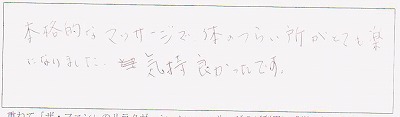 本格的なマッサージで体のつらい所がとても楽
になりました。気持良かったです。